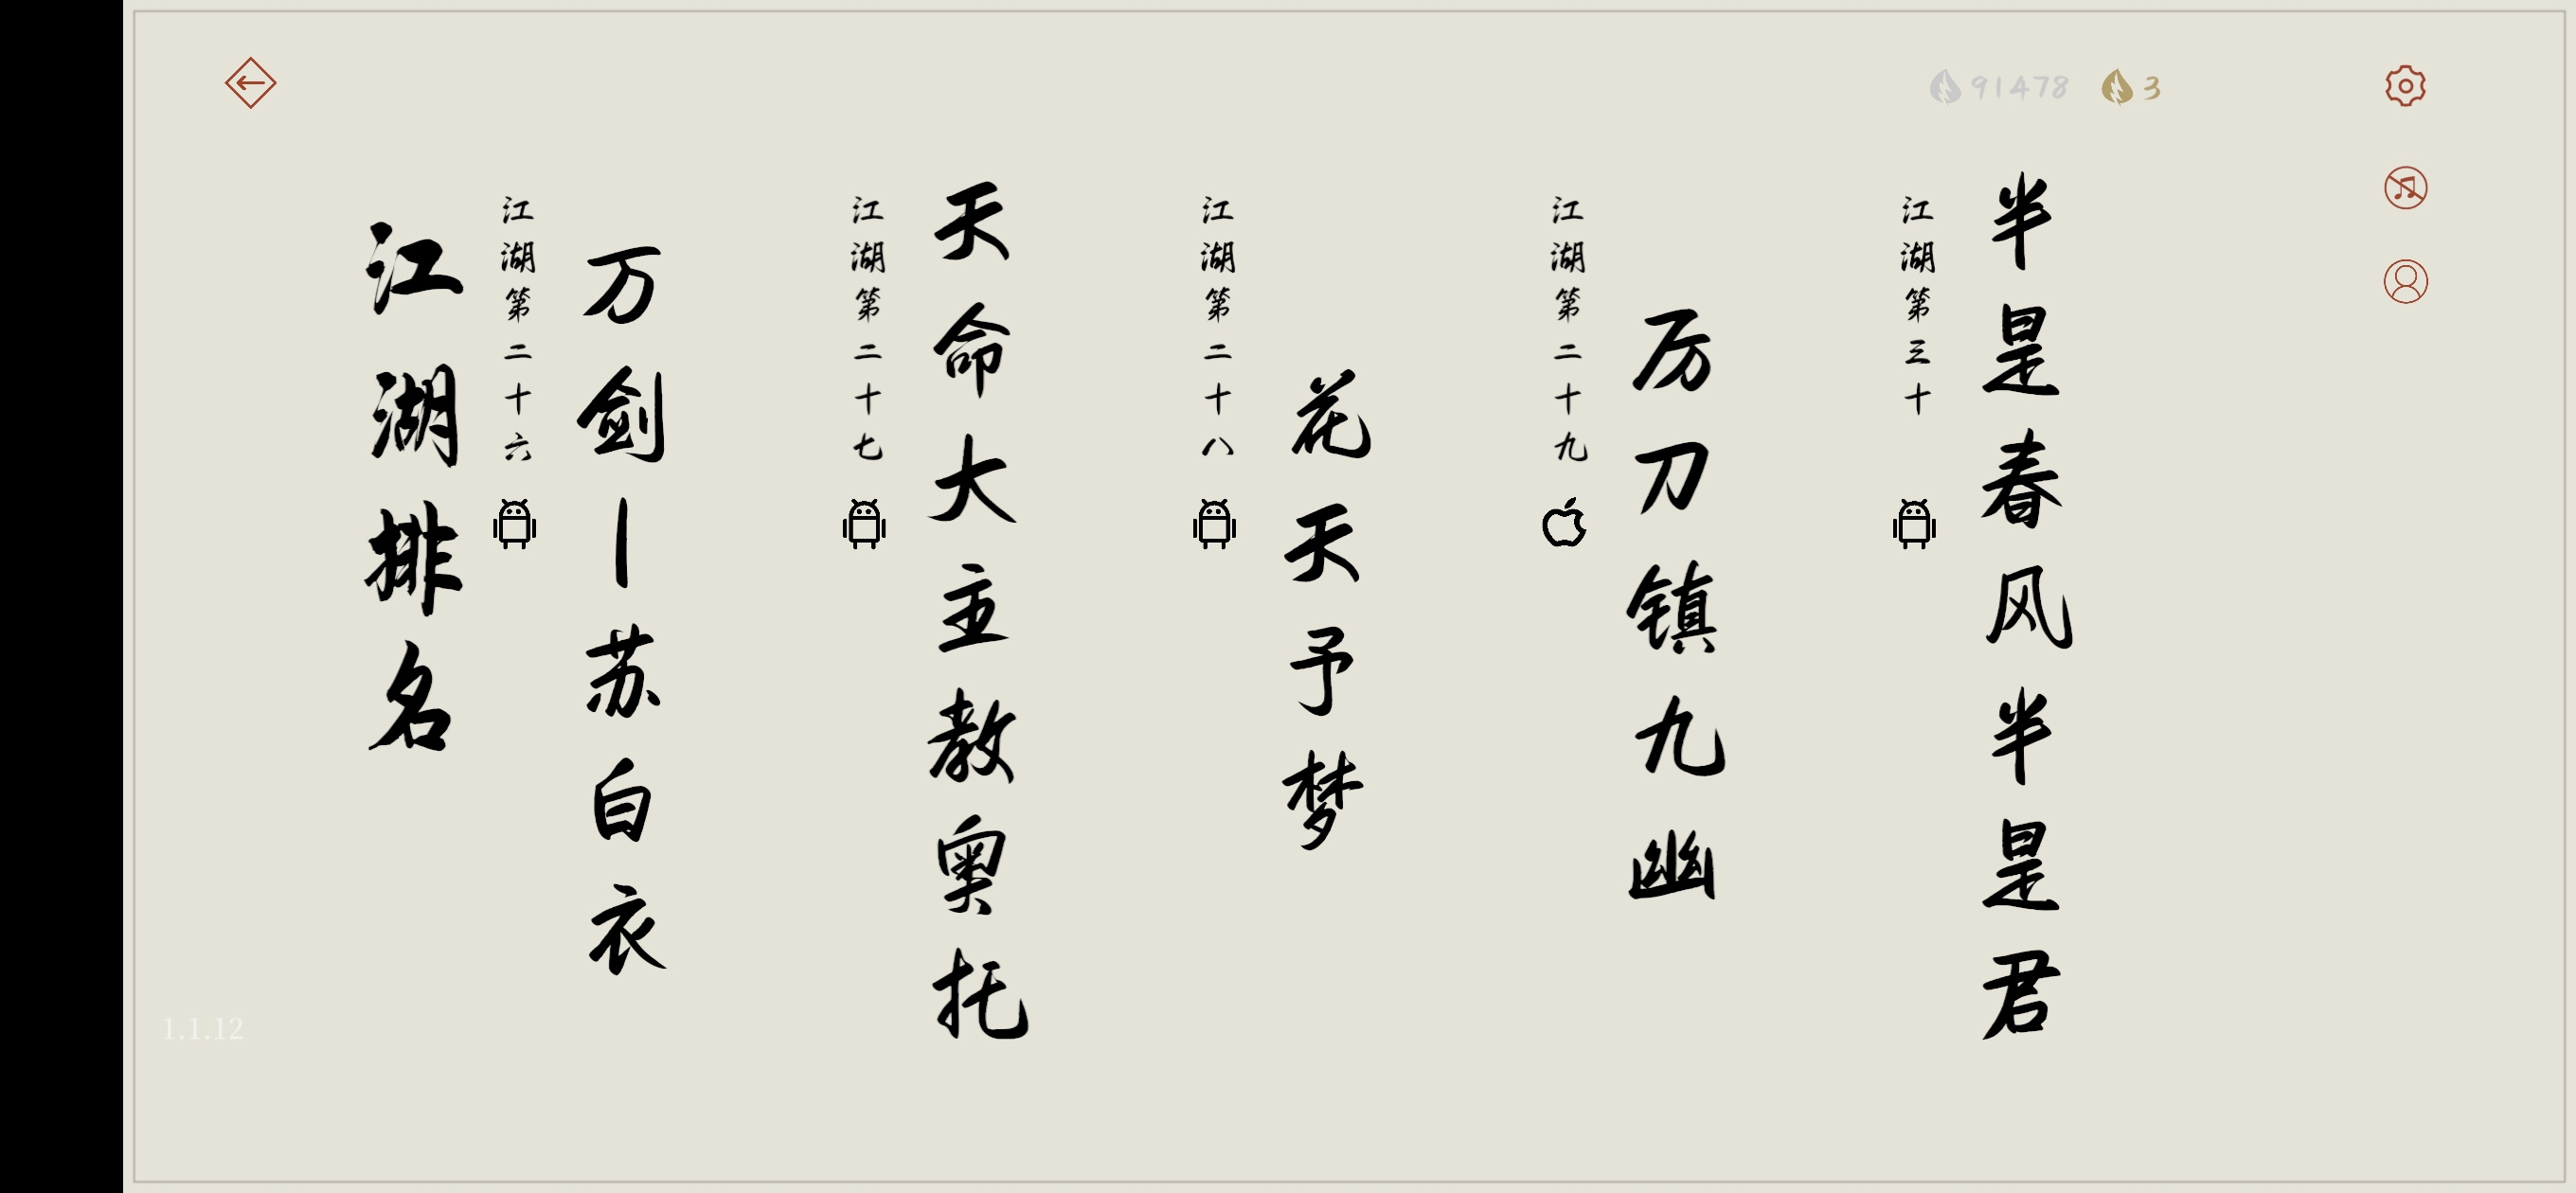 91478
3
江湖排名
江湖第二十六
万剑丨苏白衣
江湖第二十七
天命大主教奥托
江湖第二十八
花天予梦
江湖第二十九
厉刀镇九幽
江湖第三十
半是春风半是君
1.1.12